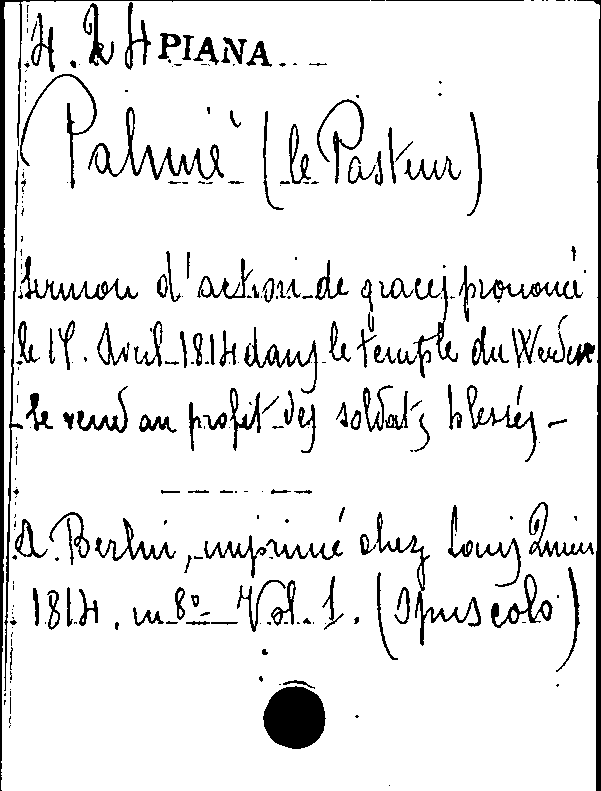 4. 2 4 PIANA
Palmié (le Pasteur)
Sermon d'action de graces prononcé
le 14. Avril 1814 dans le temple du Werder
se vend au profit des soldats blessés -
A. Berlin, imprimé chez Louis Quien
1814. in 8º Vol. 1. (Opuscolo)